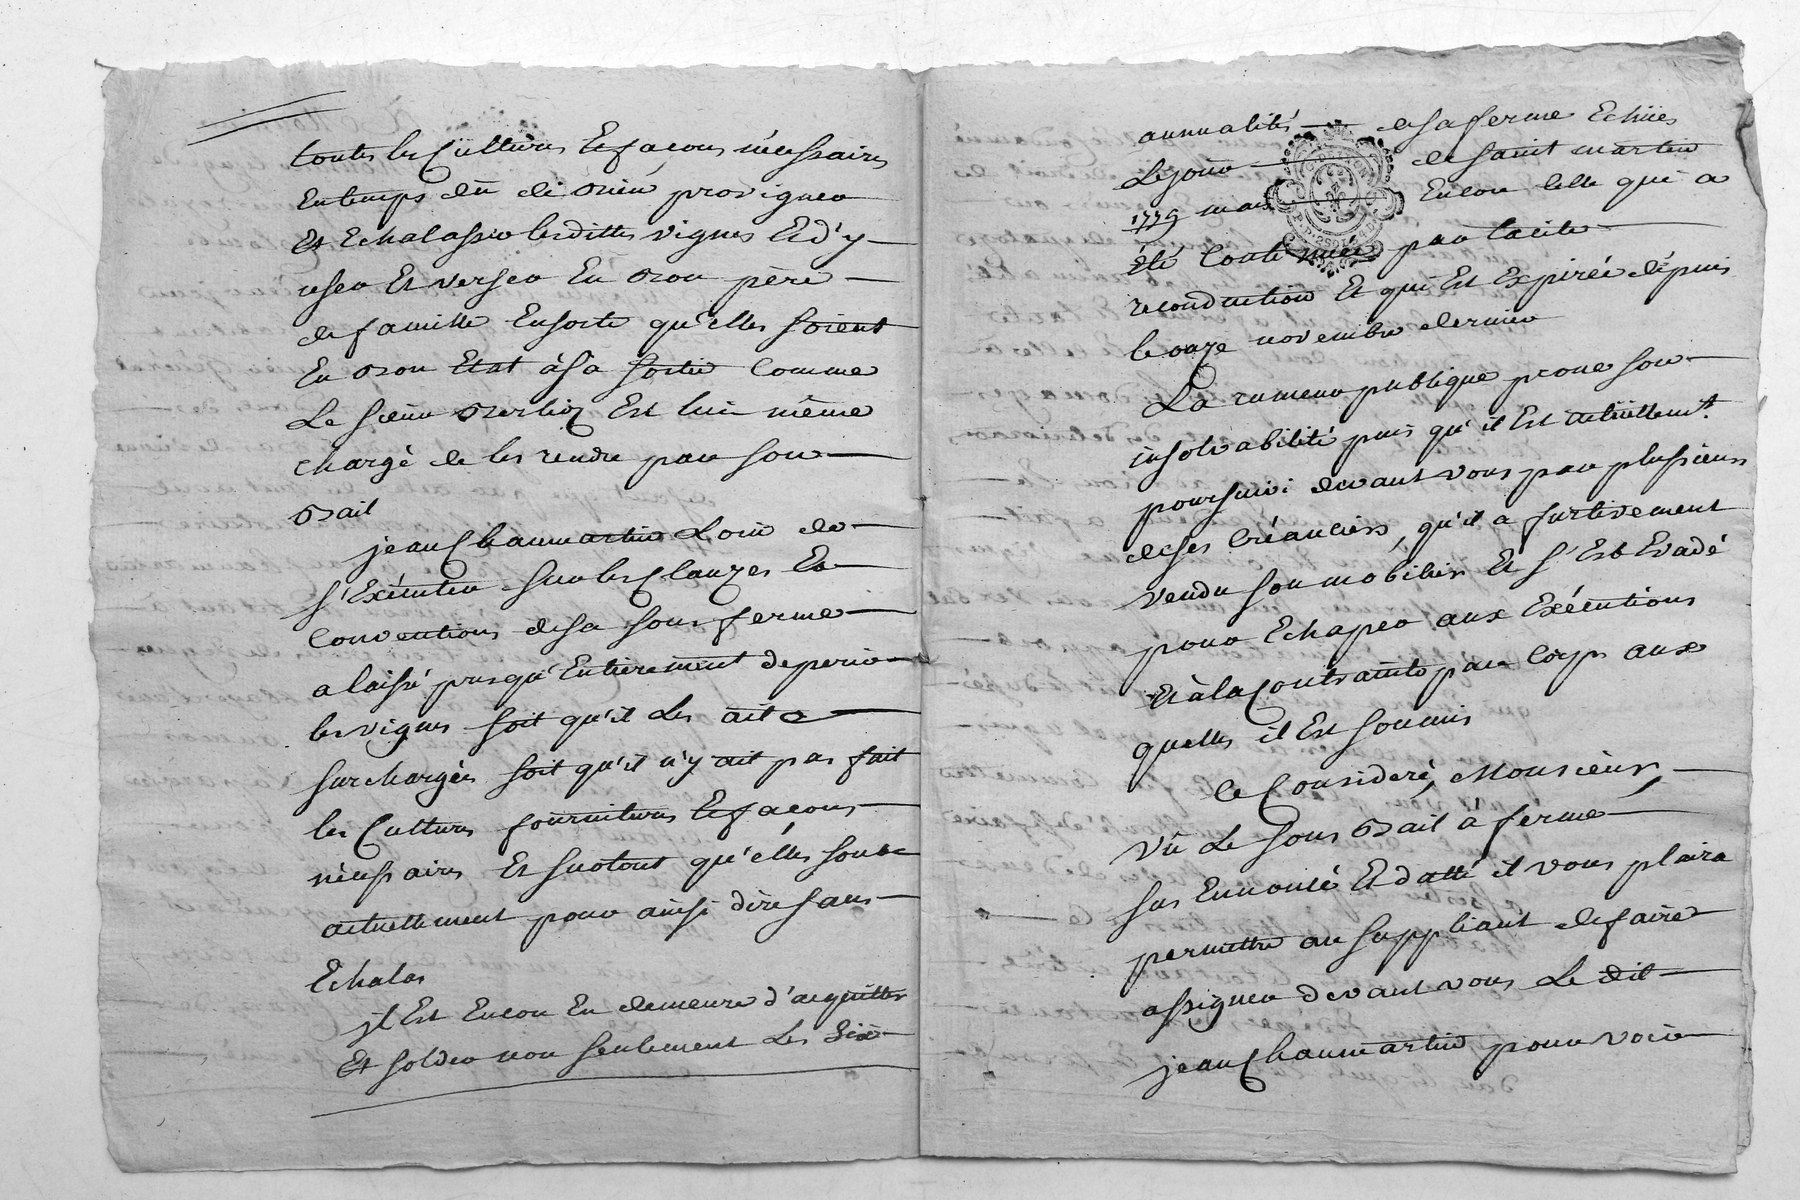 toutes les Cültures Et façons nécessaires
En temps dû de bien provigner
Et Echalasser lesdittes vignes Et d'y
user Et verser En bon père
de famille Ensorte qu'elles soient
En bon Etat à sa sortie Comme
Le sieur Est lui même
chargé de les rendre par son
Bail
jean Chaumartin Loin de
s'Exécuter sur les Clauzes Et
Conventions de sa sous ferme
a laissé presqu'Entierement deperir
les vignes soit qu'il Les ait
surchargées soit qu'il n'y ait pas fait
les Cultures fournitures Et façons
nécessaires Et surtout qu'elles sont
actuellement pour ainsi dire sans
Echalas
jl Est Encore En demeure d'acquitter
Et solder non seulement Les Six
annualités de sa ferme Echües
Le jour de saint martin
1779 mais Encore Celle qui a
été Continuée par tacite
reconduction Et qui Est Expirée depuis
le onze novembre dernier
La rumeur publique prone son
insolvabilité puis qu'il Est actüellement
poursuivi devant vous par plusieurs
de ses Créanciers, qu'il a furtivement
vendu son mobilier Et s'Est Evadé
pour Echaper aux Exécutions
Et à la Contrainte par Corps aux
quelles il Est soumis
Ce Consideré, Monsieur,
vû Le sous Bail à ferme
sus Ennoncé Et datté il vous plaira
permettre au suppliant de faire
assigner devant vous Le dit
jean Chaumartin pour voir